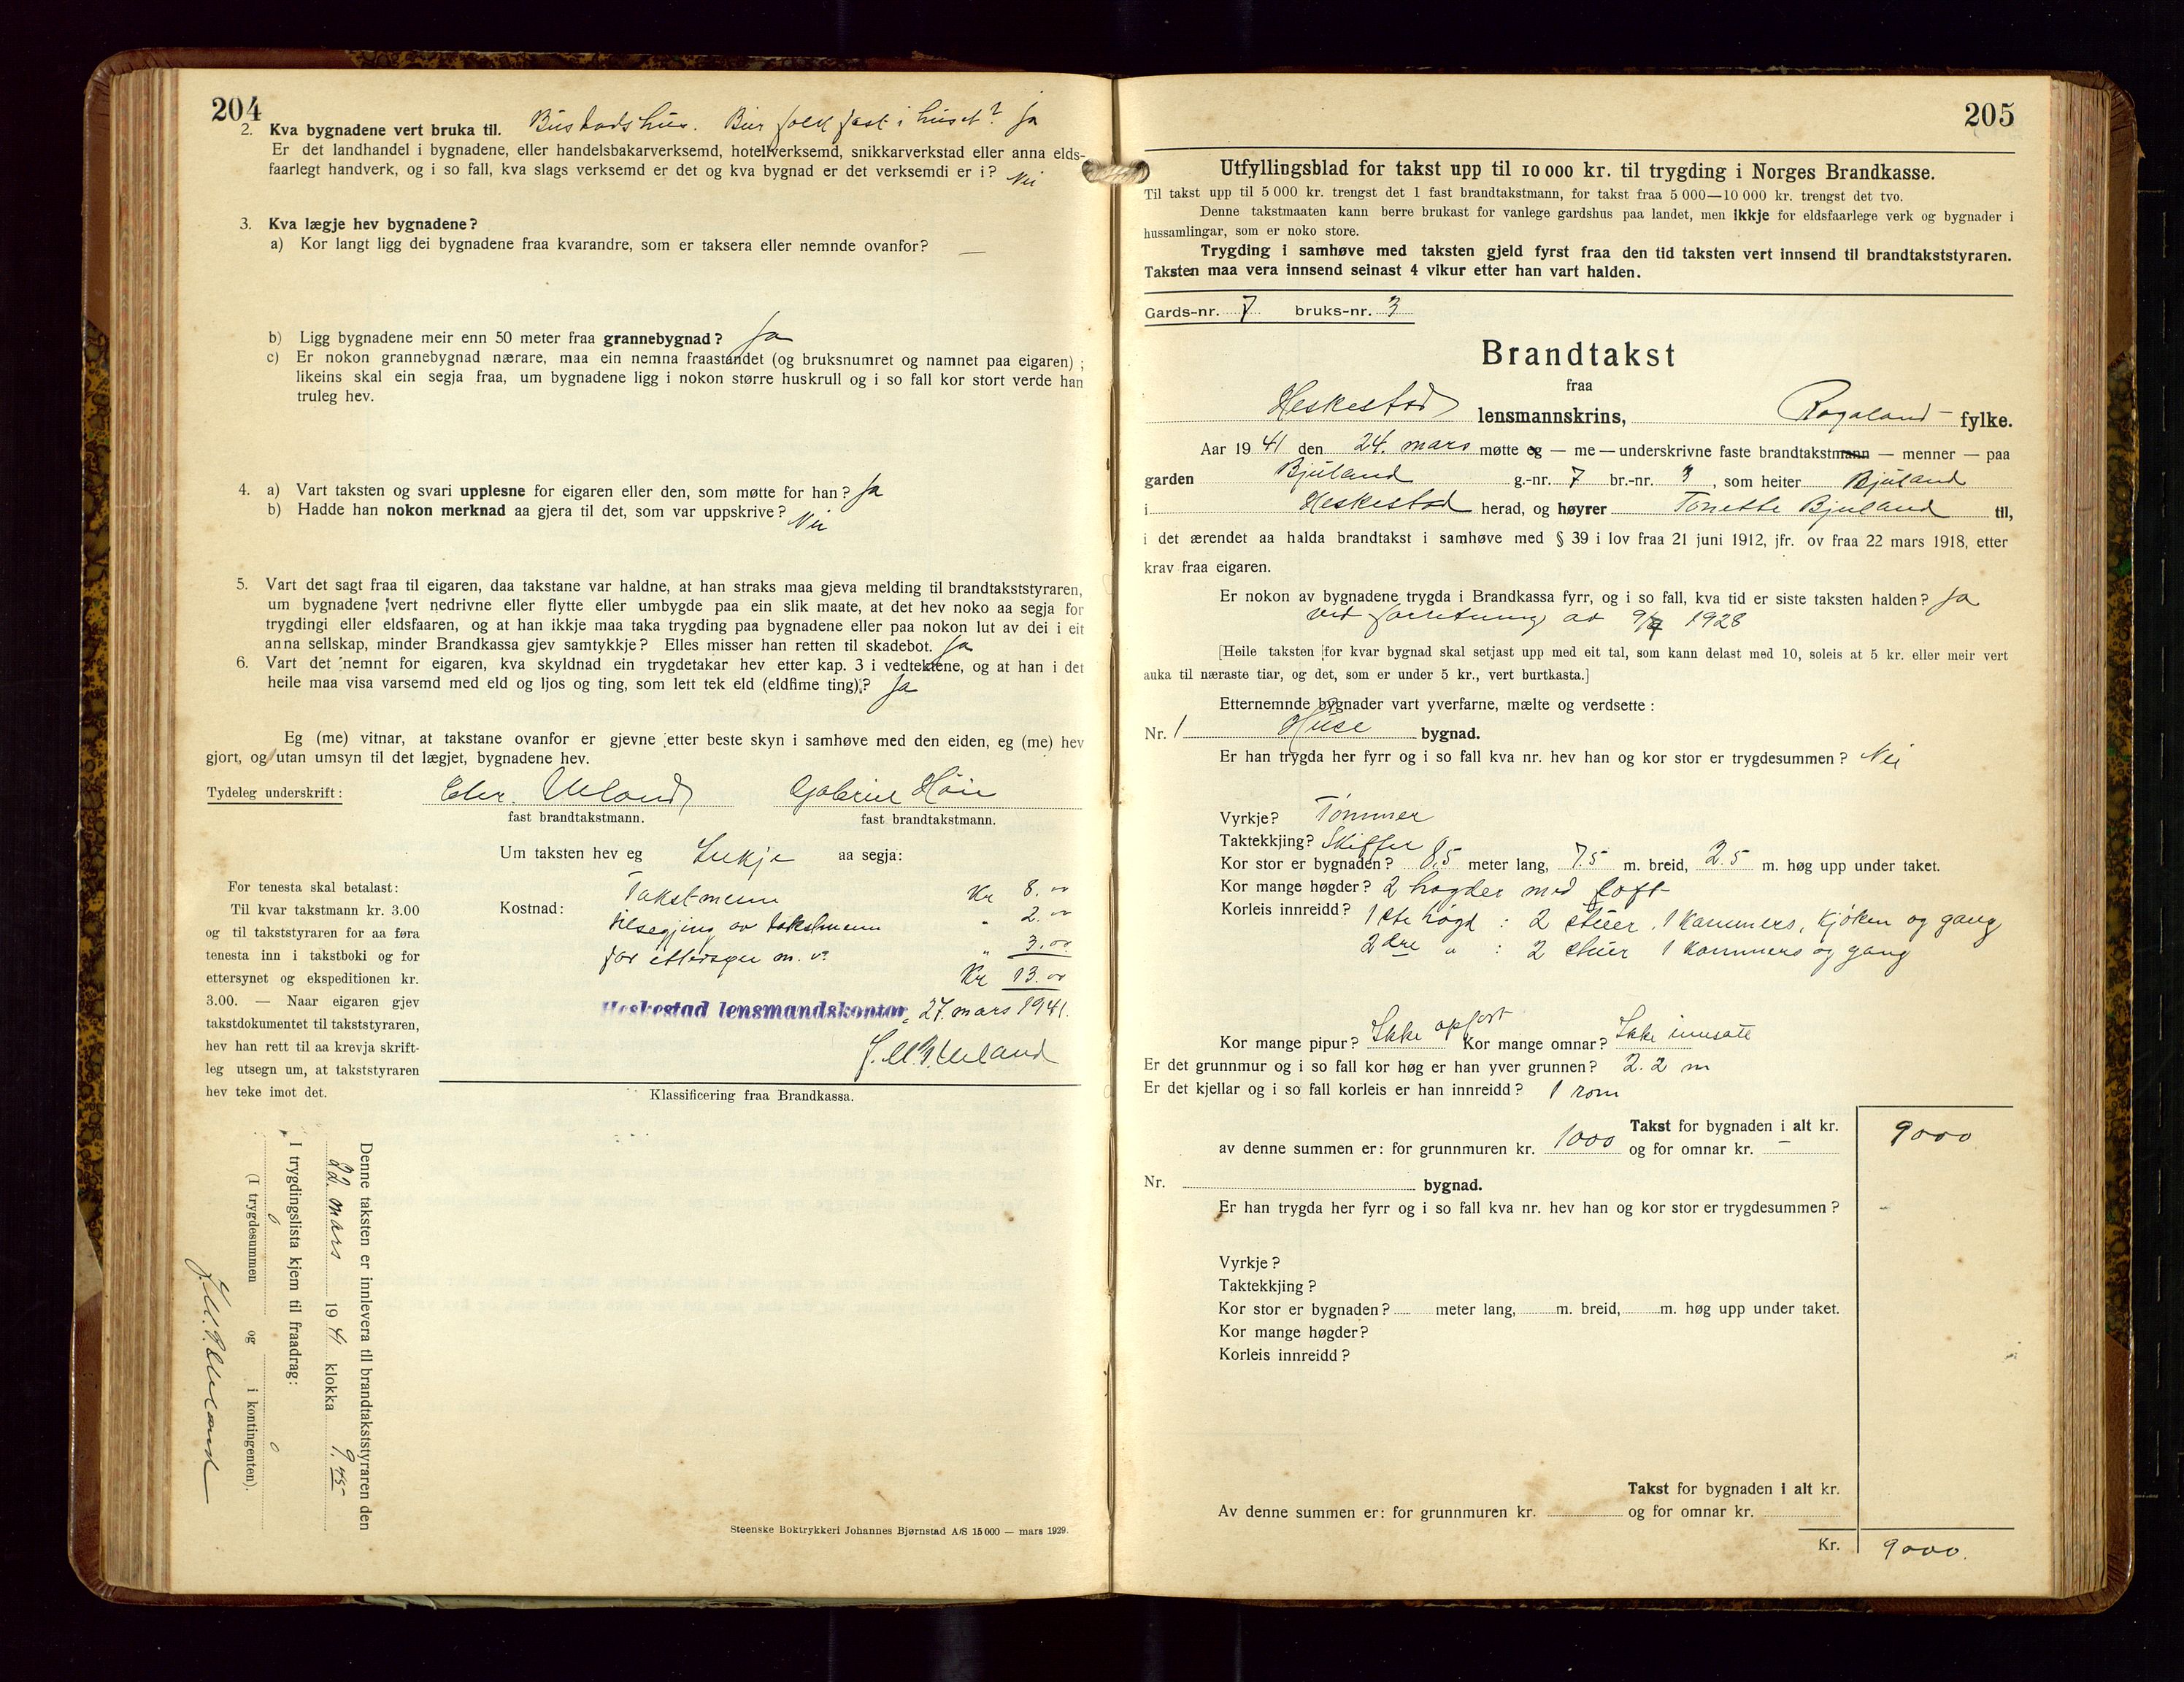 204
2. Kva bygnadene vert bruka til. Bustadshus. Bur folk fast i huset? Ja
Er det landhandel i bygnadene, eller handelsbakarverksemd, hotellverksemd, snikkarverkstad eller anna elds-
faarlegt handverk, og i so fall, kva slags verksemd er det og kva bygnad er det verksemdi er i? Nei
3. Kva lægje hev bygnadene?
a) Kor langt ligg dei bygnadene fraa kvarandre, som er taksera eller nemnde ovanfor? —
b) Ligg bygnadene meir enn 50 meter fraa grannebygnad? Ja
c) Er nokon grannebygnad nærare, maa ein nemna fraastandet (og bruksnumret og namnet paa eigaren);
likeins skal ein segja fraa, um bygnadene ligg i nokon større huskrull og i so fall kor stort verde han
truleg hev.
4. a) Vart taksten og svari upplesne for eigaren eller den, som møtte for han? Ja
b) Hadde han nokon merknad aa gjera til det, som var uppskrive? Nei
5. Vart det sagt fraa til eigaren, daa takstane var haldne, at han straks maa gjeva melding til brandtakststyraren,
um bygnadene vert nedrivne eller flytte eller umbygde paa ein slik maate, at det hev noko aa segja for
trygdingi eller eldsfaaren, og at han ikkje maa taka trygding paa bygnadene eller paa nokon lut av dei i eit
anna sellskap, minder Brandkassa gjev samtykkje? Elles misser han retten til skadebot. Ja
6. Vart det nemnt for eigaren, kva skyldnad ein trygdetakar hev etter kap. 3 i vedtektene, og at han i det
heile maa visa varsemd med eld og ljos og ting, som lett tek eld (eldfime ting)? Ja
Eg (me) vitnar, at takstane ovanfor er gjevne etter beste skyn i samhøve med den eiden, eg (me) hev
gjort, og utan umsyn til det lægjet, bygnadene hev.
Tydeleg underskrift: Chr. Ueland Gabriel Høie
fast brandtakstmann. fast brandtakstmann.
Um taksten hev eg Ikkje aa segja:
Kostnad: Takstmenn Kr 8.00
tilsegjing av takstmenn " 2.00
for ettersyn m. v. " 3.00
Kr 13.00
Heskestad lensmandskontor, 27. mars 1941.
Ueland
For tenesta skal betalast:
Til kvar takstmann kr. 3.00
og til takststyraren for aa føra
tenesta inn i takstboki og for
ettersynet og ekspeditionen kr.
3.00. — Naar eigaren gjev
takstdokumentet til takststyraren,
hev han rett til aa krevja skrift-
leg utsegn um, at takststyraren
hev teke imot det.
Klassificering fraa Brandkassa.
Denne taksten er innlevera til brandtakststyraren den
22. mars 1941 klokka 9.45
I trygdingslista kjem til fraadrag:
0 0
(I trygdesummen og i kontingenten).
Ueland
Steenske Boktrykkeri Johannes Bjørnstad A/S 15 000 — mars 1929.
205
Utfyllingsblad for takst upp til 10 000 kr. til trygding i Norges Brandkasse.
Til takst upp til 5 000 kr. trengst det 1 fast brandtakstmann, for takst fraa 5 000—10 000 kr. trengst det tvo.
Denne takstmaaten kann berre brukast for vanlege gardshus paa landet, men ikkje for eldsfaarlege verk og bygnader i
hussamlingar, som er noko store.
Trygding i samhøve med taksten gjeld fyrst fraa den tid taksten vert innsend til brandtakststyraren.
Taksten maa vera innsend seinast 4 vikur etter han vart halden.
Gards-nr. 7 bruks-nr. 3
Brandtakst
fraa
Heskestad lensmannskrins, Rogaland fylke.
Aar 1941 den 24. mars møtte eg — me — underskrivne faste brandtakstmann — menner — paa
garden Bjuland g.-nr. 7 br.-nr. 3, som heiter Bjuland
i Heskestad herad, og høyrer Tonette Bjuland til,
i det ærendet aa halda brandtakst i samhøve med § 39 i lov fraa 21 juni 1912, jfr. ov fraa 22 mars 1918, etter
krav fraa eigaren.
Er nokon av bygnadene trygda i Brandkassa fyrr, og i so fall, kva tid er siste taksten halden? Ja
ved forretning av 9/4 1928
[Heile taksten for kvar bygnad skal setjast upp med eit tal, som kann delast med 10, soleis at 5 kr. eller meir vert
auka til næraste tiar, og det, som er under 5 kr., vert burtkasta.]
Etternemnde bygnader vart yverfarne, mælte og verdsette:
Nr. 1 Huse bygnad.
Er han trygda her fyrr og i so fall kva nr. hev han og kor stor er trygdesummen? Nei
Vyrkje? Tømmer
Taktekkjing? Skiffer
Kor stor er bygnaden? 8.5 meter lang, 7.5 m. breid, 2.5 m. høg upp under taket.
Kor mange høgder? 2 høgder med loft
Korleis innreidd? 1ste høgd : 2 stuer, 1 kammers, kjøken og gang
2dre " : 2 stuer 1 kammers og gang
Kor mange pipur? Ikke opført Kor mange omnar? Ikke innsatt
Er det grunnmur og i so fall kor høg er han yver grunnen? 2.2 m
Er det kjellar og i so fall korleis er han innreidd? 1 rom
Takst for bygnaden i alt kr. 9000
av denne summen er: for grunnmuren kr. 1000 og for omnar kr. —
Nr. bygnad.
Er han trygda her fyrr og i so fall kva nr. hev han og kor stor er trygdesummen?
Vyrkje?
Taktekkjing?
Kor stor er bygnaden? meter lang, m. breid, m. høg upp under taket.
Kor mange høgder?
Korleis innreidd?
Takst for bygnaden i alt kr.
Av denne summen er: for grunnmuren kr. og for omnar kr.
Kr. 9000.